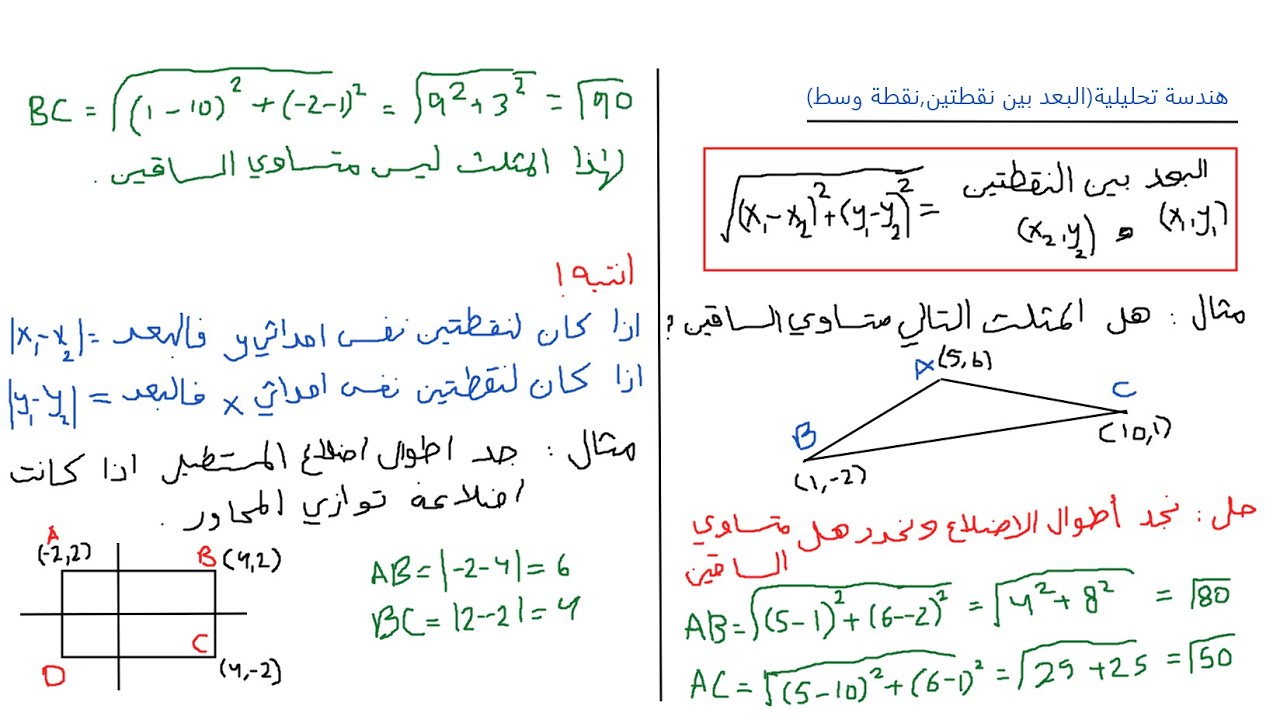 هندسة تحليلية(البعد بين نقطتين,نقطة وسط)
البعد بين النقطتين
(x₁,y₁) و (x₂,y₂)
= √((x₁-x₂)²+(y₁-y₂)²)
مثال : هل المثلث التالي متساوي الساقين ?
A (5,6)
C
(10,1)
B
(1,-2)
حل : نجد أطوال الاضلاع ونحدد هل متساوي
الساقين
AB=√((5-1)²+(6--2)²) = √(4²+8²) = √80
AC=√((5-10)²+(6-1)²) = √(25+25) = √50
BC = √((1-10)²+(-2-1)²) = √(9²+3²) = √90
لهذا المثلث ليس متساوي الساقين .
انتبه !
اذا كان لنقطتين نفس احداثي y فالبعد =|x₁-x₂|
اذا كان لنقطتين نفس احداثي x فالبعد = |y₁-y₂|
مثال : جد اطوال اضلاع المستطيل اذا كانت
اضلاعه توازي المحاور .
A
(-2,2)
B (4,2)
C
(4,-2)
D
AB=|-2-4|=6
BC=|2--2|=4